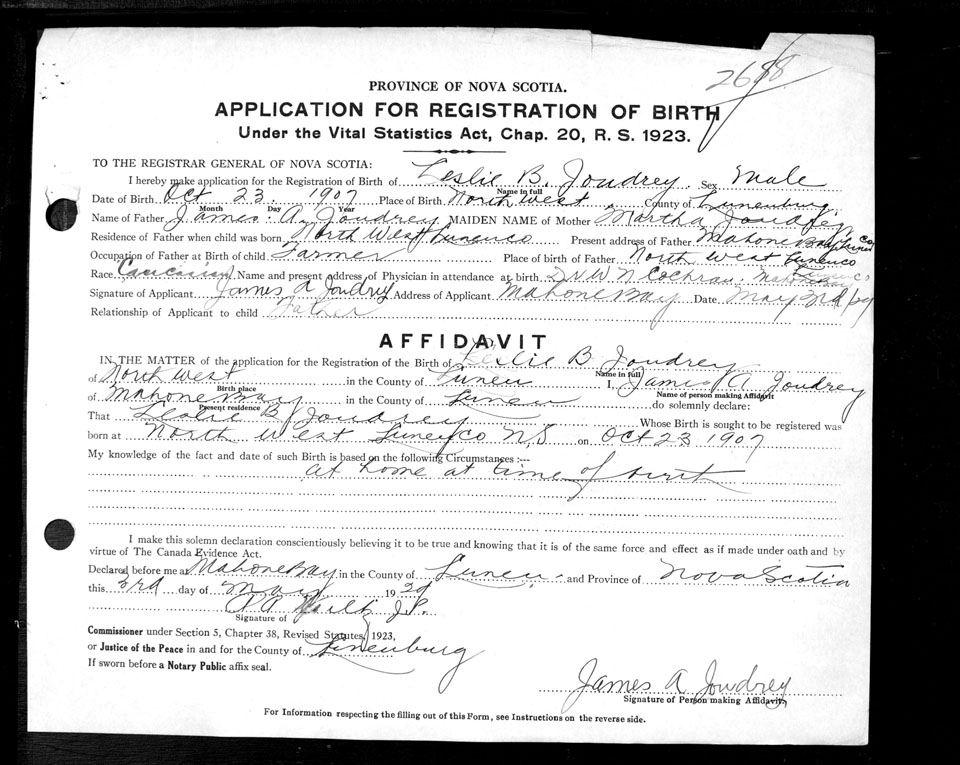 2688
PROVINCE OF NOVA SCOTIA.
APPLICATION FOR REGISTRATION OF BIRTH
Under the Vital Statistics Act, Chap. 20, R. S. 1923.
TO THE REGISTRAR GENERAL OF NOVA SCOTIA:
I hereby make application for the Registration of Birth of Leslie B. Joudrey. Sex Male
Name in full
Date of Birth Oct 23 1907 Place of Birth North West County of Lunenburg
Month Day Year
Name of Father James A Joudrey MAIDEN NAME of Mother Martha Joudrey
Residence of Father when child was born North West Lunenco Present address of Father Mahone Bay Lunen Co
Occupation of Father at Birth of child Farmer Place of birth of Father North West Lunenco
Race Caucasian Name and present address of Physician in attendance at birth Dr W N Cochran Mahone Bay Lunenco
Signature of Applicant James A Joudrey Address of Applicant Mahone Bay Date May 3rd
Relationship of Applicant to child Father
AFFIDAVIT
IN THE MATTER of the application for the Registration of the Birth of Leslie B Joudrey
Name in full
of North West in the County of Lunen I, James A Joudrey
Birth place Name of person making Affidavit
of Mahone Bay in the County of Lunen do solemnly declare:
Present residence
That Leslie B Joudrey Whose Birth is sought to be registered was
born at North West Lunen co N,S on Oct 23 1907
My knowledge of the fact and date of such Birth is based on the following Circumstances :---
at home at time of
I make this solemn declaration conscientiously believing it to be true and knowing that it is of the same force and effect as if made under oath and by
virtue of The Canada Evidence Act.
Declared before me at Mahone Bay in the County of Lunen and Province of Nova Scotia
this 3rd day of May 19
J.P.
Signature of
Commissioner under Section 5, Chapter 38, Revised Statutes, 1923,
or Justice of the Peace in and for the County of Lunenburg
If sworn before a Notary Public affix seal.
James A Joudrey
Signature of Person making Affidavit,
For Information respecting the filling out of this Form, see Instructions on the reverse side.